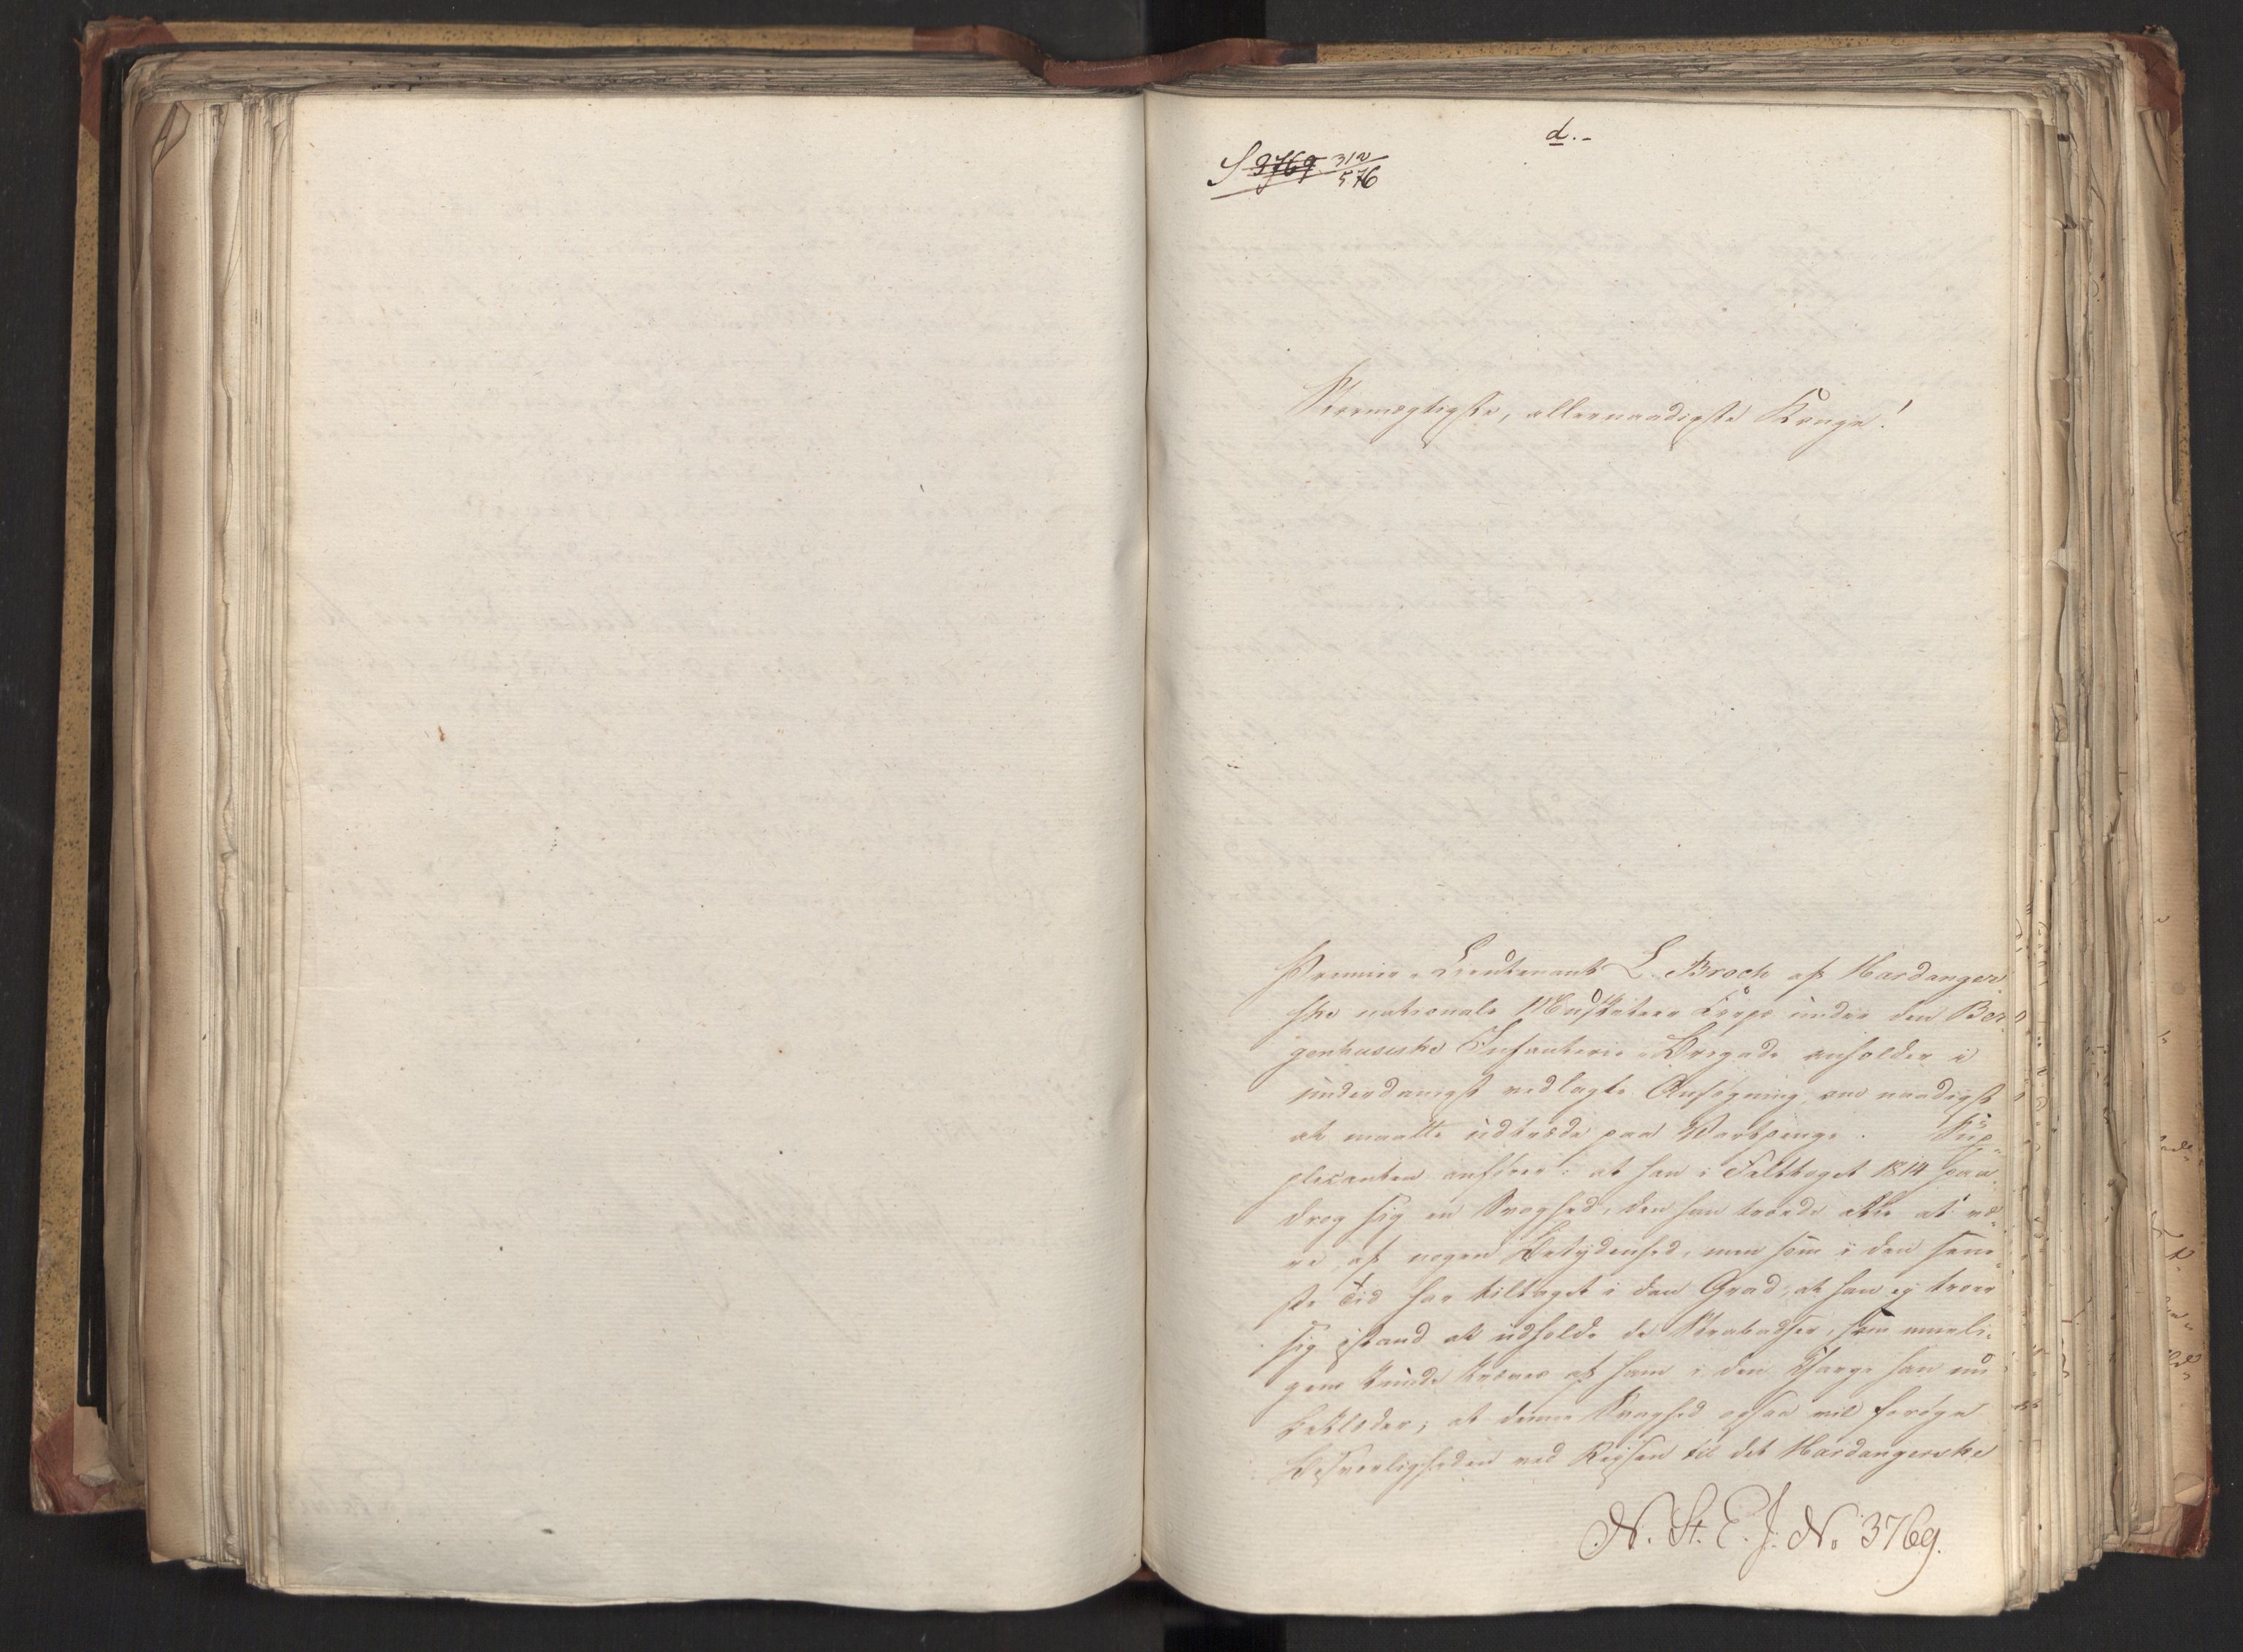 d.-
S 3769 312/576
Stormægtigste, allernaadigste Konge!
Premier-Lieutenant L. Broch af Hardanger-
ske nationale Musketeer Corps under den Ber-
genhusiske Infanterie-Brigade anholder i
underdanigst vedlagte Ansøgning, om naadigst
at maatte udtræde paa Vartpenge. Sup-
plicanten anfører: at han i Felttoget 1814 paa-
drog sig en Svaghed, den han troede ikke at væ-
re af nogen Betydenhed, men som i den sene-
ste Tid har tiltaget i den Grad, at han ej troer
sig istand at udholde de Strabadser, som mueli-
gens kunde kræves af ham i den Charge han nu
beklæder; at denne Svaghed ogsaa vil forøge
Besværligheden ved Reysen til det Hardangerske
N. St. E. J. No 3769.